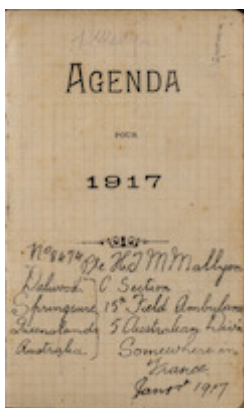 AGENDA
POUR
1917
No 8474 Pte H J M Mallyon
Dalwood C Section
Springsure 15th Field Ambulance
Queensland 5 Australian Divis
Australia Somewhere in
France
1917